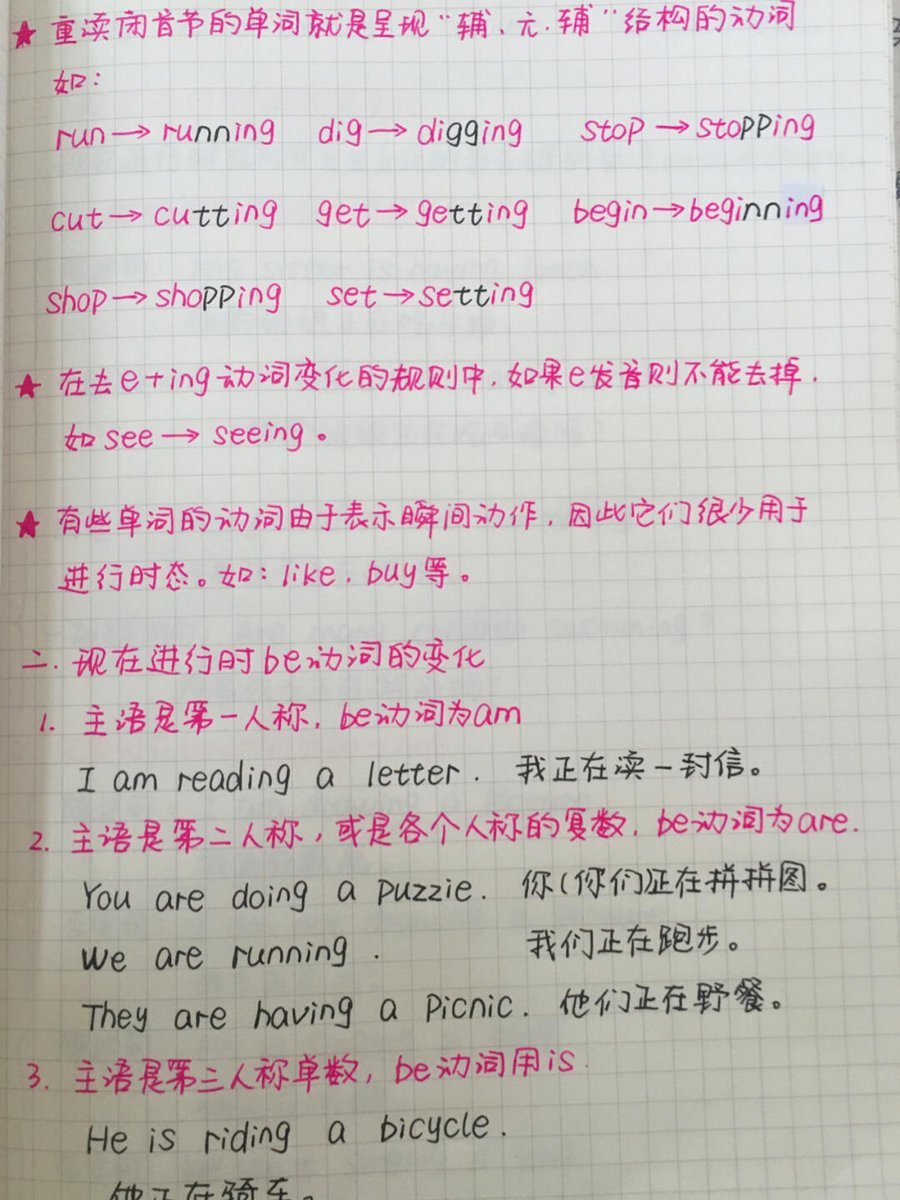 ★ 重读闭音节的单词就是呈现"辅、元、辅"结构的动词
如：
run→running dig→digging stop→stopping
cut→cutting get→getting begin→beginning
shop→shopping set→setting
★ 在去e+ing动词变化的规则中，如果e发音则不能去掉．
如see→seeing。
★ 有些单词的动词由于表示瞬间动作，因此它们很少用于
进行时态。如：like．buy等。
二．现在进行时be动词的变化
1. 主语是第一人称，be动词为am
I am reading a letter. 我正在读一封信。
2. 主语是第二人称，或是各个人称的复数，be动词为are.
You are doing a puzzie. 你(你们)正在拼拼图。
We are running. 我们正在跑步。
They are having a Picnic. 他们正在野餐。
3. 主语是第三人称单数，be动词用is.
He is riding a bicycle.
他正在骑车。